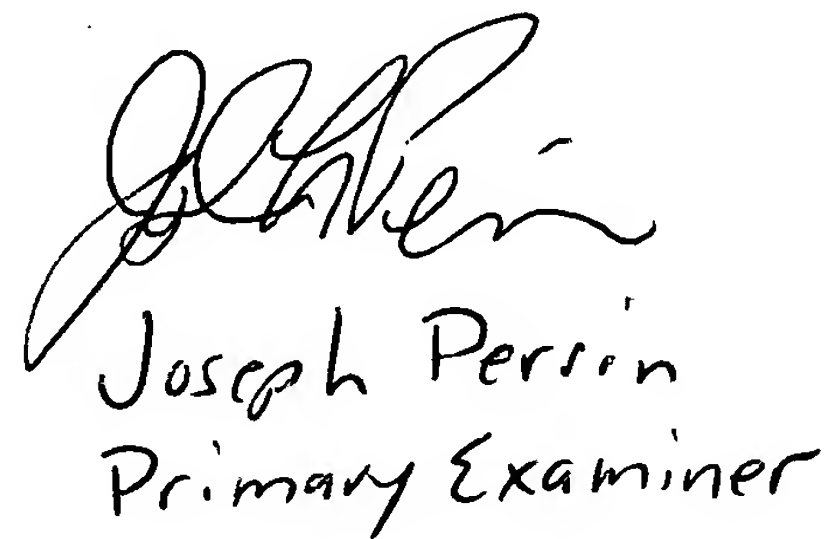 Joseph Perrin
Primary Examiner